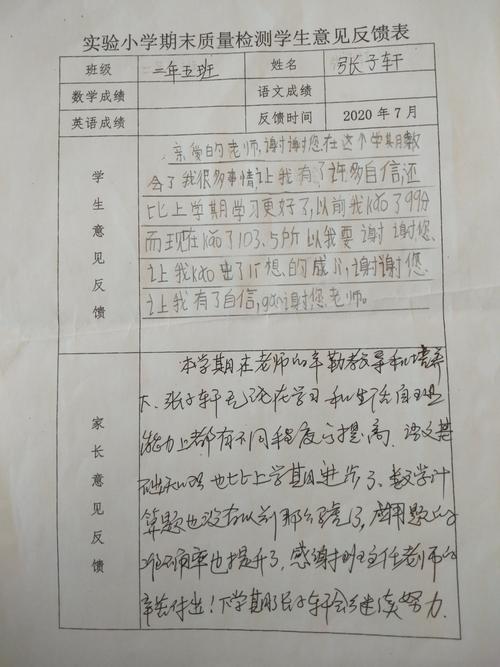 实验小学期末质量检测学生意见反馈表
班级 二年五班 姓名 张子轩
数学成绩 语文成绩
英语成绩 反馈时间 2020年7月
学生意见反馈
亲爱的老师,谢谢您在这个学期教
会了我很多事情,让我有了许多自信,还
比上学期学习更好了,以前我kǎo了99分
而现在kǎo了103.5分所以我要谢谢您、
让我kǎo出了理想的成,谢谢您
让我有了自信,gǎn谢您老师。
家长意见反馈
本学期在老师的辛勤教导和培养
下、张子轩无论在学习和生活自理
能力上都有不同程度的提高、语文基
础知识也比上学期进步了、数学计
算题也没有以前那么马虎了,应用题的
准确率也提升了,感谢班主任老师的
辛苦付出!下学期张子轩会继续努力.